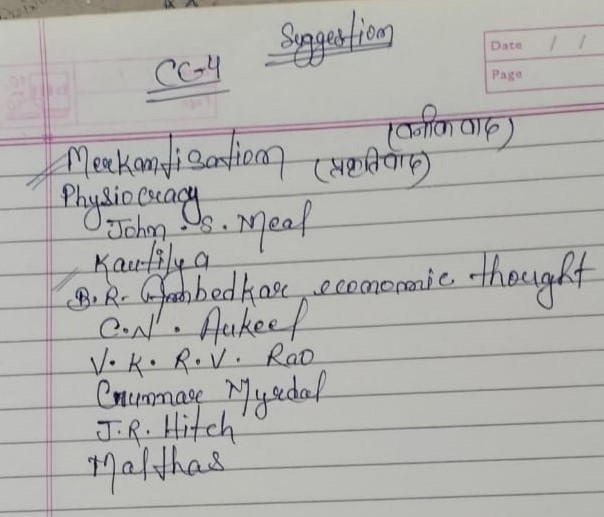 Suggestion
CC-4
Date / /
Page
Merkantisation (वनीकवाद)
Physiocracy (प्रकृतिवाद)
John. S. Meal
Kautilya
B.R. Ambedkar economic thought
C.N.
V. K. R. V. Rao
Gunnar Myrdal
J.R. Hitch
Malthas